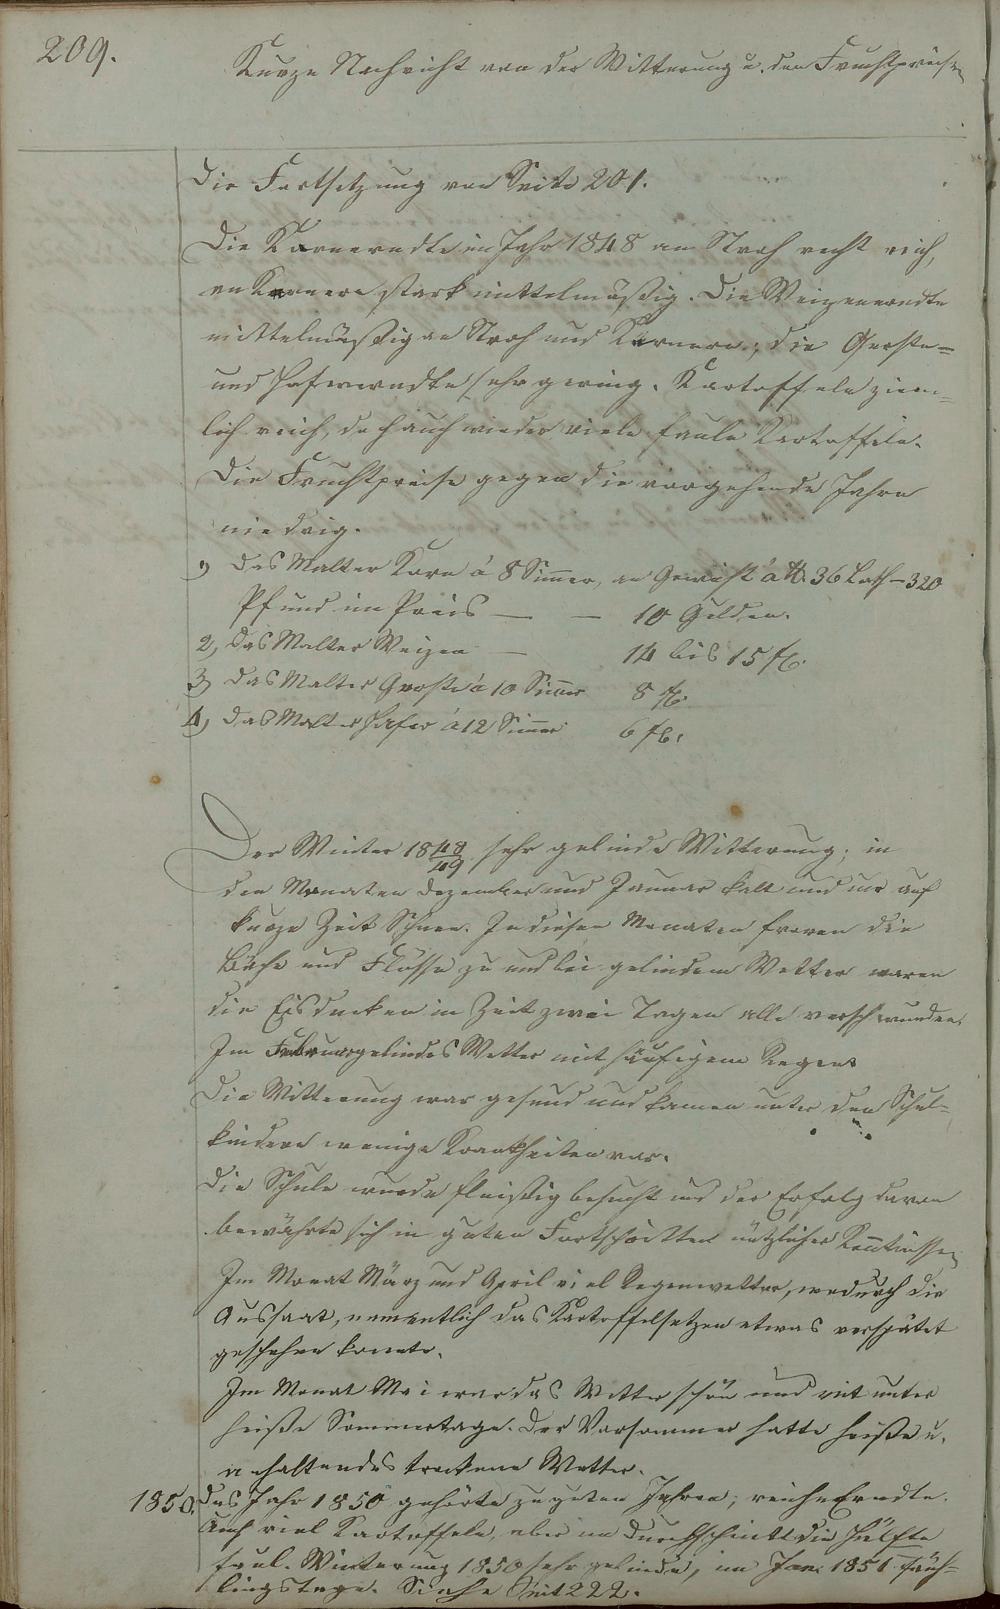 209.
Kurze Nachricht von der Witterung u. den Fruchtpreisen
Die Fortsetzung von Seite 201.
Die Kornerndte im Jahr 1848 an Stroh recht reich,
an Körnern stark mittelmäßig. Die Weizenerndte
mittelmäßig an Stroh und Körnern; die Gerste-
und Hafererndte sehr gering. Kartoffeln ziem-
lich reich, doch auch wieder viele faule Kartoffeln.
Die Fruchtpreise gegen die vorgehende Jahre
niedrig.
1) Das Malter Korn á 8 Simmer, an Gewicht á ℔. 36 Loth - 320
Pfund im Preis — — 10 Gulden.
2, Das Malter Weizen — 14 bis 15 fl.
3) Das Malter Gerste á 10 Simmer 8 fl.
4) Das Malter Hafer á 12 Simmer 6 fl.
Der Winter 1848/49 sehr gelinde Witterung; in
den Monaten Dezember und Januar kalt und nur auf
kurze Zeit Schnee. In diesen Monaten froren die
Bäche und Flüsse zu und bei gelindem Wetter waren
die Eisdecken in Zeit zwei Tagen alle verschwunden.
Im Februar gelindes Wetter mit häufigem Regen.
Die Witterung war gesund und kamen unter den Schul-
kindern wenige Krankheiten vor.
Die Schule wurde fleißig besucht und der Erfolg davon
bewährte sich in guten Fortschritten nützlicher Kenntnissen
Im Monat März und April viel Regenwetter, wodurch die
Aussaat, namentlich das Kartoffelsetzen etwas verspätet
geschehen konnte.
Im Monat Mai war das Wetter schön und mit unter
heiße Sommertage. Der Vorsommer hatte heiße u.
anhaltendes trockene Wetter.
1850. Das Jahr 1850 gehörte zu guten Jahren; reiche Erndte.
Auch viel Kartoffeln, aber im Durchschnitt die Hälfte
faul. Winterung 1850 sehr gelinde, im Jan. 1851 Früh-
lingstage. Siehe Seit 222.